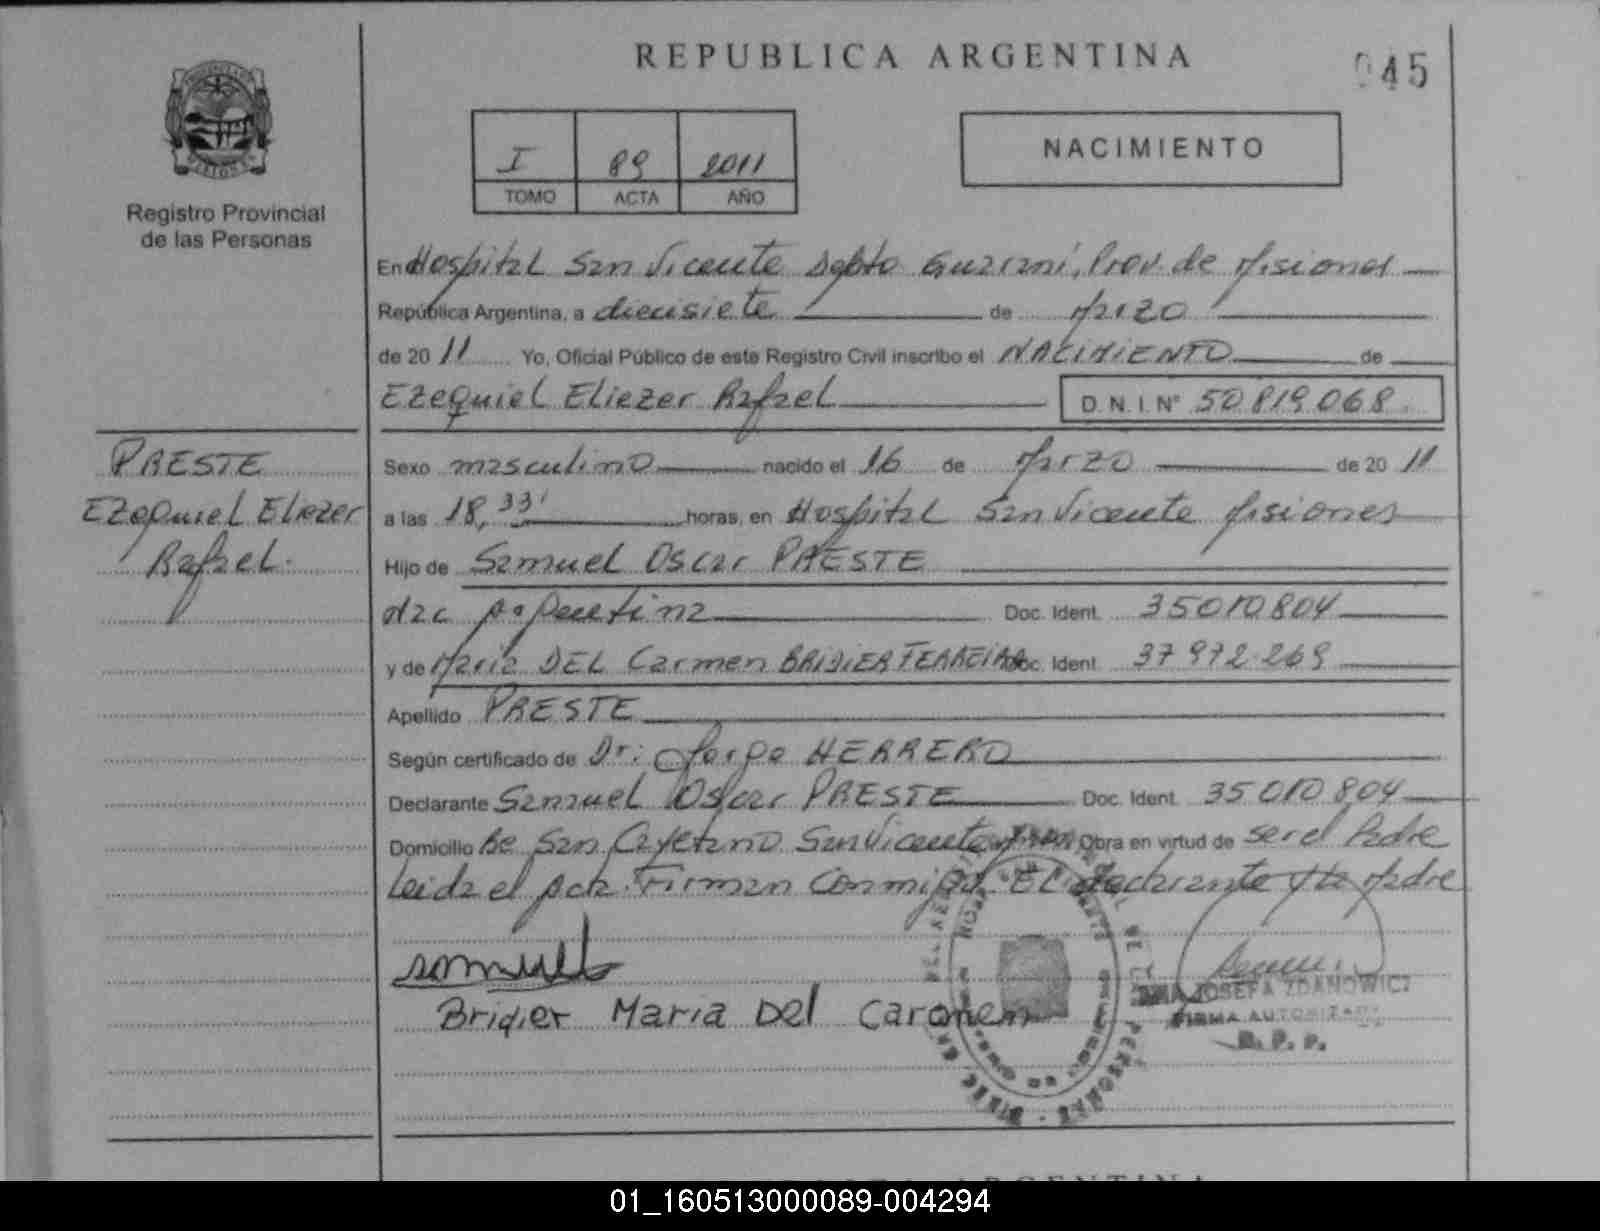 REPUBLICA ARGENTINA
045
I 89 2011
TOMO ACTA AÑO
NACIMIENTO
Registro Provincial
de las Personas
En Hospital San Vicente Depto Guaraní, Prov. de Misiones
República Argentina, a diecisiete de Marzo
de 20 11 Yo, Oficial Público de este Registro Civil inscribo el NACIMIENTO de
Ezequiel Eliezer Rafael D.N.I. N° 50.819.068
PRESTE
Ezequiel Eliezer
Rafael.
Sexo masculino nacido el 16 de Marzo de 20 11
a las 18,33' horas, en Hospital San Vicente Misiones
Hijo de Samuel Oscar PRESTE
Nac Argentina Doc. Ident. 35010804
y de Maria DEL Carmen BRIDIER FERREIRA Doc. Ident. 37972.269
Apellido PRESTE
Según certificado de Dr: Jorge HERRERO
Declarante Samuel Oscar PRESTE Doc. Ident. 35010804
Domicilio Be San Cayetano San Vicente Obra en virtud de ser el Padre
Leida el acta Firman Conmigo El declarante y la Madre
samuel
Bridier Maria Del Carmen
JOSEFA ZDANOWICZ
FIRMA AUTORIZADA
R. P. P.
ARGENTINA
01_160513000089-004294